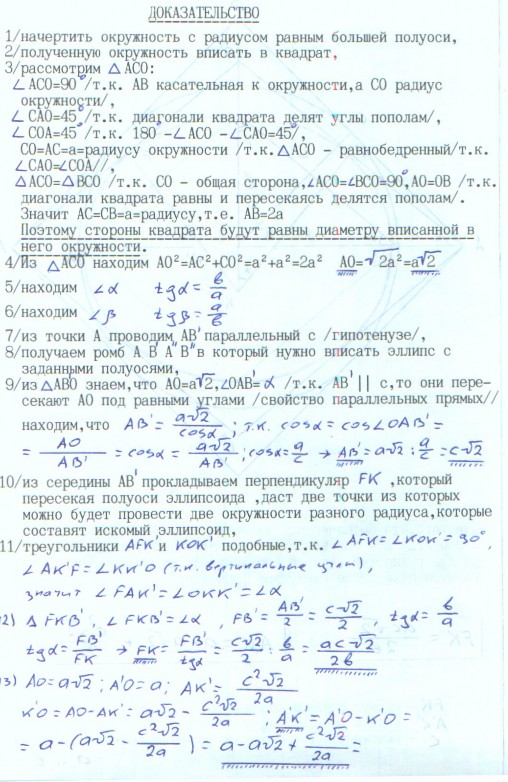 ДОКАЗАТЕЛЬСТВО
1/начертить окружность с радиусом равным большей полуоси,
2/полученную окружность вписать в квадрат,
3/рассмотрим △ АСО:
∠ АСО=90°/т.к. АВ касательная к окружности,а СО радиус
окружности/,
∠ САО=45°/т.к. диагонали квадрата делят углы пополам/,
∠ СОА=45°/т.к. 180°-∠АСО -∠САО=45°/,
СО=АС=а=радиусу окружности /т.к.△АСО - равнобедренный/т.к.
∠САО=∠СОА//,
△АСО=△ВСО /т.к. СО - общая сторона,∠АСО=∠ВСО=90°,АО=ОВ /т.к.
диагонали квадрата равны и пересекаясь делятся пополам/.
Значит АС=СВ=а=радиусу,т.е. АВ=2а
Поэтому стороны квадрата будут равны диаметру вписанной в
него окружности.
4/Из △АСО находим АО²=АС²+СО²=а²+а²=2а² АО=√2а²=а√2
5/находим ∠α tgα = в/а
6/находим ∠β tgβ = а/в
7/из точки А проводим АВ' параллельный с /гипотенузе/,
8/получаем ромб А В' А" В" в который нужно вписать эллипс с
заданными полуосями,
9/из△АВ'О знаем,что АО=а√2,∠ОАВ'=α /т.к. АВ'|| с,то они пере-
секают АО под равными углами /свойство параллельных прямых//
находим,что АВ' = а√2/cosα ; т.к. cosα = cos∠ОАВ' =
= АО/АВ' = cosα = а√2/АВ' ; cosα = а/с → АВ' = а√2 : а/с = с√2
10/из середины АВ'прокладываем перпендикуляр FK ,который
пересекая полуоси эллипсоида ,даст две точки из которых
можно будет провести две окружности разного радиуса,которые
составят искомый эллипсоид,
11/треугольники AFK' и KOK' подобные,т.к. ∠AFK = ∠KOK' = 90°,
∠AK'F = ∠KK'O (т.к. вертикальные углы),
значит ∠FAK' = ∠OKK' = ∠α
2) △ FKB', ∠FKB' = ∠α, FB' = АВ'/2 = с√2/2 , tgα = в/а
tgα = FB'/FK → FK = FB'/tgα = с√2/2 : в/а = ас√2/2в
3) АО = а√2 ; А'О = а ; АК' = с²√2/2а
К'О = АО - АК' = а√2 - с²√2/2а ; А'К' = А'О - К'О =
= а - (а√2 - с²√2/2а) = а - а√2 + с²√2/2а =